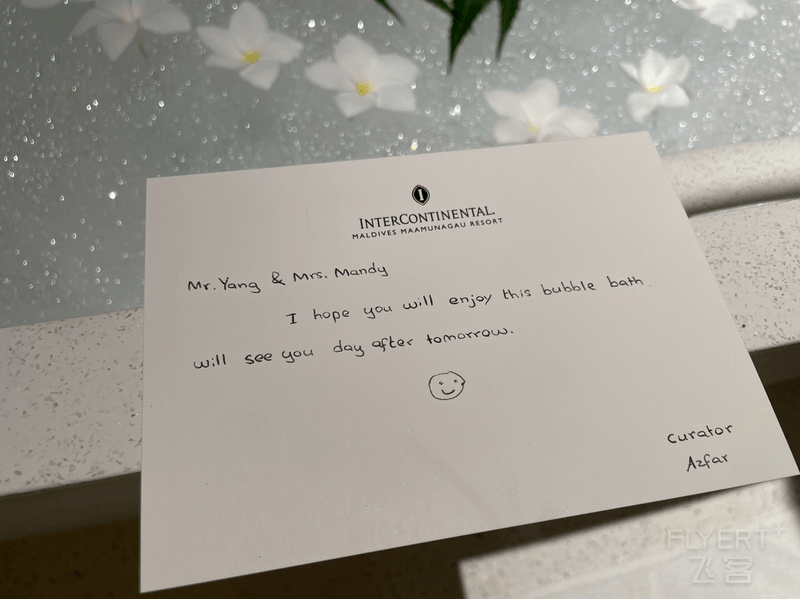 I
INTERCONTINENTAL.
MALDIVES MAAMUNAGAU RESORT
Mr. Yang & Mrs. Mandy
I hope you will enjoy this bubble bath
will see you day after tomorrow.
Curator
Azfar
FLYERT+
飞客